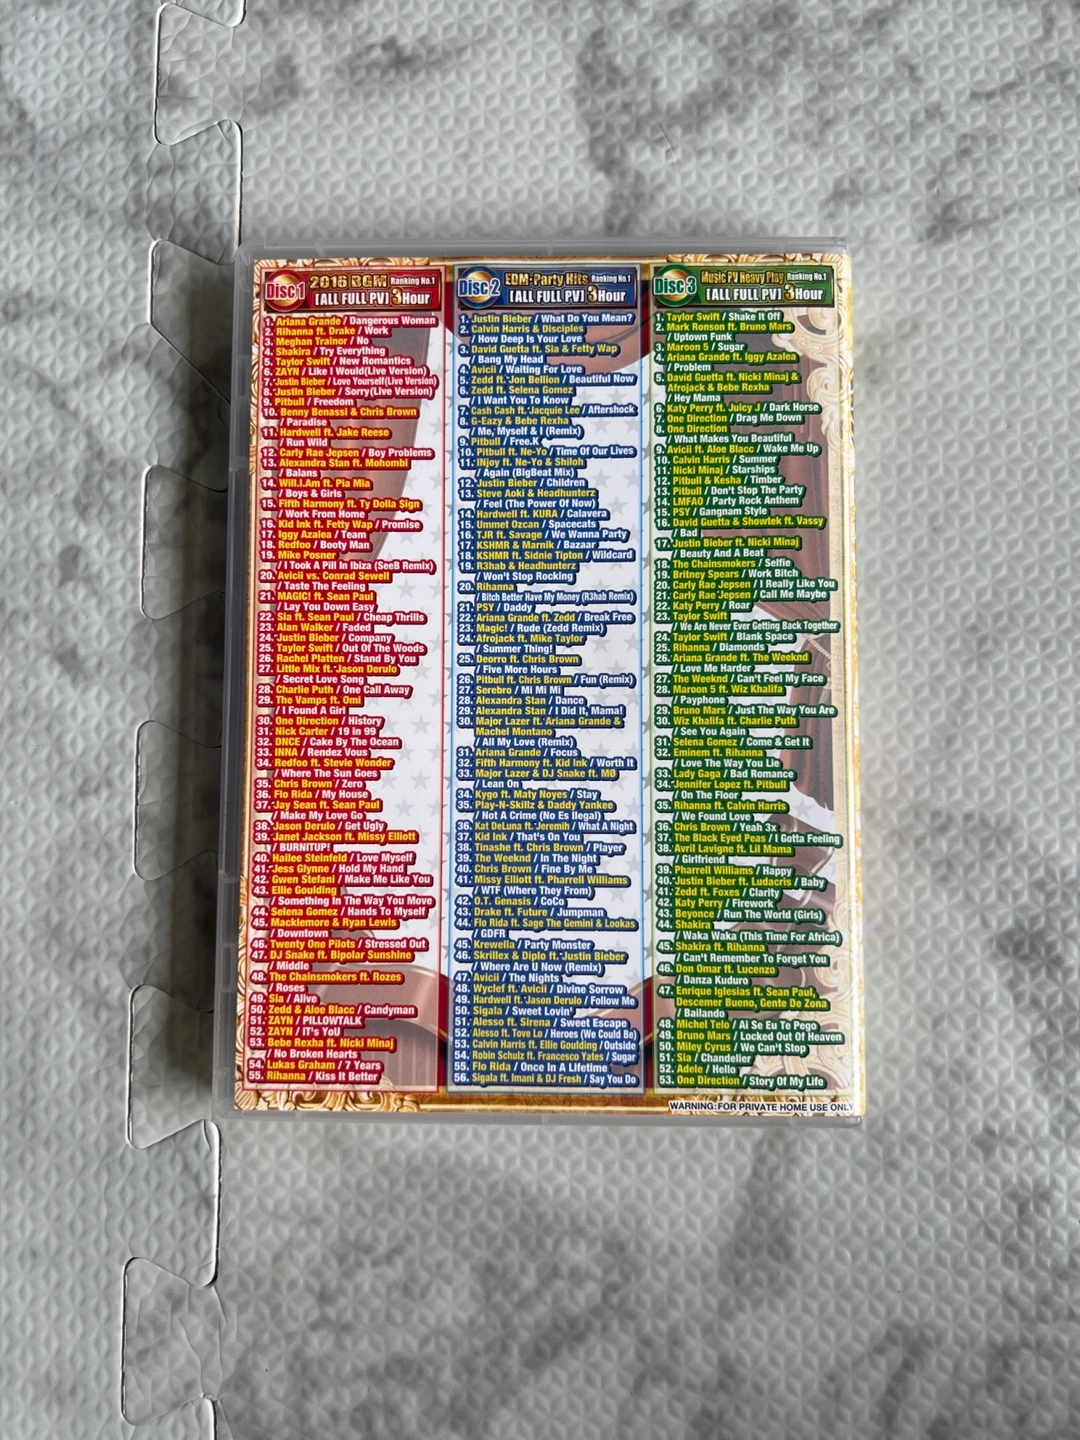 Disc 1 2016 BGM Ranking No.1
[ALL FULL PV] 3Hour
1. Ariana Grande / Dangerous Woman
2. Rihanna ft. Drake / Work
3. Meghan Trainor / No
4. Shakira / Try Everything
5. Taylor Swift / New Romantics
6. ZAYN / Like I Would(Live Version)
7. Justin Bieber / Love Yourself(Live Version)
8. Justin Bieber / Sorry(Live Version)
9. Pitbull / Freedom
10. Benny Benassi & Chris Brown
/ Paradise
11. Hardwell ft. Jake Reese
/ Run Wild
12. Carly Rae Jepsen / Boy Problems
13. Alexandra Stan ft. Mohombi
/ Balans
14. Will.I.Am ft. Pia Mia
/ Boys & Girls
15. Fifth Harmony ft. Ty Dolla $ign
/ Work From Home
16. Kid Ink ft. Fetty Wap / Promise
17. Iggy Azalea / Team
18. Redfoo / Booty Man
19. Mike Posner
/ I Took A Pill In Ibiza (SeeB Remix)
20. Avicii vs. Conrad Sewell
/ Taste The Feeling
21. MAGIC! ft. Sean Paul
/ Lay You Down Easy
22. Sia ft. Sean Paul / Cheap Thrills
23. Alan Walker / Faded
24. Justin Bieber / Company
25. Taylor Swift / Out Of The Woods
26. Rachel Platten / Stand By You
27. Little Mix ft. Jason Derulo
/ Secret Love Song
28. Charlie Puth / One Call Away
29. The Vamps ft. Omi
/ I Found A Girl
30. One Direction / History
31. Nick Carter / 19 in 99
32. DNCE / Cake By The Ocean
33. INNA / Rendez Vous
34. Redfoo ft. Stevie Wonder
/ Where The Sun Goes
35. Chris Brown / Zero
36. Flo Rida / My House
37. Jay Sean ft. Sean Paul
/ Make My Love Go
38. Jason Derulo / Get Ugly
39. Janet Jackson ft. Missy Elliott
/ BURNITUP!
40. Hailee Steinfeld / Love Myself
41. Jess Glynne / Hold My Hand
42. Gwen Stefani / Make Me Like You
43. Ellie Goulding
/ Something In The Way You Move
44. Selena Gomez / Hands To Myself
45. Macklemore & Ryan Lewis
/ Downtown
46. Twenty One Pilots / Stressed Out
47. DJ Snake ft. Bipolar Sunshine
/ Middle
48. The Chainsmokers ft. Rozes
/ Roses
49. Sia / Alive
50. Zedd & Aloe Blacc / Candyman
51. ZAYN / PILLOWTALK
52. ZAYN / iT's YoU
53. Bebe Rexha ft. Nicki Minaj
/ No Broken Hearts
54. Lukas Graham / 7 Years
55. Rihanna / Kiss It Better
Disc 2 EDM-Party Hits Ranking No.1
[ALL FULL PV] 3Hour
1. Justin Bieber / What Do You Mean?
2. Calvin Harris & Disciples
/ How Deep Is Your Love
3. David Guetta ft. Sia & Fetty Wap
/ Bang My Head
4. Avicii / Waiting For Love
5. Zedd ft. Jon Bellion / Beautiful Now
6. Zedd ft. Selena Gomez
/ I Want You To Know
7. Cash Cash ft. Jacquie Lee / Aftershock
8. G-Eazy & Bebe Rexha
/ Me, Myself & I (Remix)
9. Pitbull / Free.K
10. Pitbull ft. Ne-Yo / Time Of Our Lives
11. INjoy ft. Ne-Yo & Shiloh
/ Again (BigBeat Mix)
12. Justin Bieber / Children
13. Steve Aoki & Headhunterz
/ Feel (The Power Of Now)
14. Hardwell ft. KURA / Calavera
15. Ummet Ozcan / Spacecats
16. TJR ft. Savage / We Wanna Party
17. KSHMR & Marnik / Bazaar
18. KSHMR ft. Sidnie Tipton / Wildcard
19. R3hab & Headhunterz
/ Won't Stop Rocking
20. Rihanna
/ Bitch Better Have My Money (R3hab Remix)
21. PSY / Daddy
22. Ariana Grande ft. Zedd / Break Free
23. Magic! / Rude (Zedd Remix)
24. Afrojack ft. Mike Taylor
/ Summer Thing!
25. Deorro ft. Chris Brown
/ Five More Hours
26. Pitbull ft. Chris Brown / Fun (Remix)
27. Serebro / Mi Mi Mi
28. Alexandra Stan / Dance
29. Alexandra Stan / I Did It, Mama!
30. Major Lazer ft. Ariana Grande &
Machel Montano
/ All My Love (Remix)
31. Ariana Grande / Focus
32. Fifth Harmony ft. Kid Ink / Worth It
33. Major Lazer & DJ Snake ft. MØ
/ Lean On
34. Kygo ft. Maty Noyes / Stay
35. Play-N-Skillz & Daddy Yankee
/ Not A Crime (No Es Ilegal)
36. Kat DeLuna ft. Jeremih / What A Night
37. Kid Ink / That's On You
38. Tinashe ft. Chris Brown / Player
39. The Weeknd / In The Night
40. Chris Brown / Fine By Me
41. Missy Elliott ft. Pharrell Williams
/ WTF (Where They From)
42. O.T. Genasis / CoCo
43. Drake ft. Future / Jumpman
44. Flo Rida ft. Sage The Gemini & Lookas
/ GDFR
45. Krewella / Party Monster
46. Skrillex & Diplo ft. Justin Bieber
/ Where Are U Now (Remix)
47. Avicii / The Nights
48. Wyclef ft. Avicii / Divine Sorrow
49. Hardwell ft. Jason Derulo / Follow Me
50. Sigala / Sweet Lovin'
51. Alesso ft. Sirena / Sweet Escape
52. Alesso ft. Tove Lo / Heroes (We Could Be)
53. Calvin Harris ft. Ellie Goulding / Outside
54. Robin Schulz ft. Francesco Yates / Sugar
55. Flo Rida / Once In A Lifetime
56. Sigala ft. Imani & DJ Fresh / Say You Do
Disc 3 Music PV Heavy Play Ranking No.1
[ALL FULL PV] 3Hour
1. Taylor Swift / Shake It Off
2. Mark Ronson ft. Bruno Mars
/ Uptown Funk
3. Maroon 5 / Sugar
4. Ariana Grande ft. Iggy Azalea
/ Problem
5. David Guetta ft. Nicki Minaj &
Afrojack & Bebe Rexha
/ Hey Mama
6. Katy Perry ft. Juicy J / Dark Horse
7. One Direction / Drag Me Down
8. One Direction
/ What Makes You Beautiful
9. Avicii ft. Aloe Blacc / Wake Me Up
10. Calvin Harris / Summer
11. Nicki Minaj / Starships
12. Pitbull & Kesha / Timber
13. Pitbull / Don't Stop The Party
14. LMFAO / Party Rock Anthem
15. PSY / Gangnam Style
16. David Guetta & Showtek ft. Vassy
/ Bad
17. Justin Bieber ft. Nicki Minaj
/ Beauty And A Beat
18. The Chainsmokers / Selfie
19. Britney Spears / Work Bitch
20. Carly Rae Jepsen / I Really Like You
21. Carly Rae Jepsen / Call Me Maybe
22. Katy Perry / Roar
23. Taylor Swift
/ We Are Never Ever Getting Back Together
24. Taylor Swift / Blank Space
25. Rihanna / Diamonds
26. Ariana Grande ft. The Weeknd
/ Love Me Harder
27. The Weeknd / Can't Feel My Face
28. Maroon 5 ft. Wiz Khalifa
/ Payphone
29. Bruno Mars / Just The Way You Are
30. Wiz Khalifa ft. Charlie Puth
/ See You Again
31. Selena Gomez / Come & Get It
32. Eminem ft. Rihanna
/ Love The Way You Lie
33. Lady Gaga / Bad Romance
34. Jennifer Lopez ft. Pitbull
/ On The Floor
35. Rihanna ft. Calvin Harris
/ We Found Love
36. Chris Brown / Yeah 3x
37. The Black Eyed Peas / I Gotta Feeling
38. Avril Lavigne ft. Lil Mama
/ Girlfriend
39. Pharrell Williams / Happy
40. Justin Bieber ft. Ludacris / Baby
41. Zedd ft. Foxes / Clarity
42. Katy Perry / Firework
43. Beyonce / Run The World (Girls)
44. Shakira
/ Waka Waka (This Time For Africa)
45. Shakira ft. Rihanna
/ Can't Remember To Forget You
46. Don Omar ft. Lucenzo
/ Danza Kuduro
47. Enrique Iglesias ft. Sean Paul,
Descemer Bueno, Gente De Zona
/ Bailando
48. Michel Telo / Ai Se Eu Te Pego
49. Bruno Mars / Locked Out Of Heaven
50. Miley Cyrus / We Can't Stop
51. Sia / Chandelier
52. Adele / Hello
53. One Direction / Story Of My Life
WARNING:FOR PRIVATE HOME USE ONLY